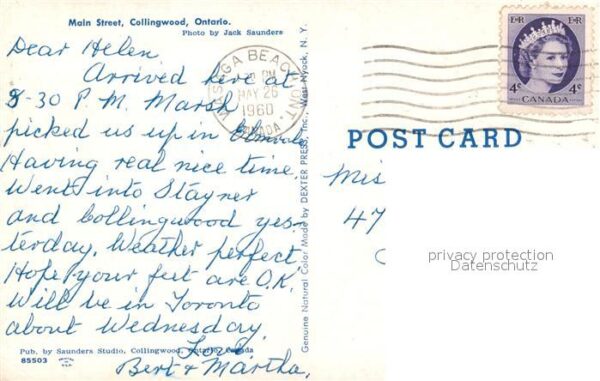 Main Street, Collingwood, Ontario.
Photo by Jack Saunders
Dear Helen
Arrived here at
5-30 P.M. Marsh
picked us up in Elmvale
Having real nice time.
Went into Stayner
and Collingwood yes-
terday. Weather perfect
Hope your feet are O.K.
Will be in Toronto
about Wednesday.
Love
Bert & Martha.
Pub. by Saunders Studio, Collingwood, Ontario, Canada
85503
Genuine Natural Color Made by DEXTER PRESS, Inc., West Nyack, N. Y.
WASAGA BEACH ONT.
PM
MAY 26
1960
CANADA
E II R E II R
4¢ 4¢
CANADA
POST CARD
Mis
47
privacy protection
Datenschutz